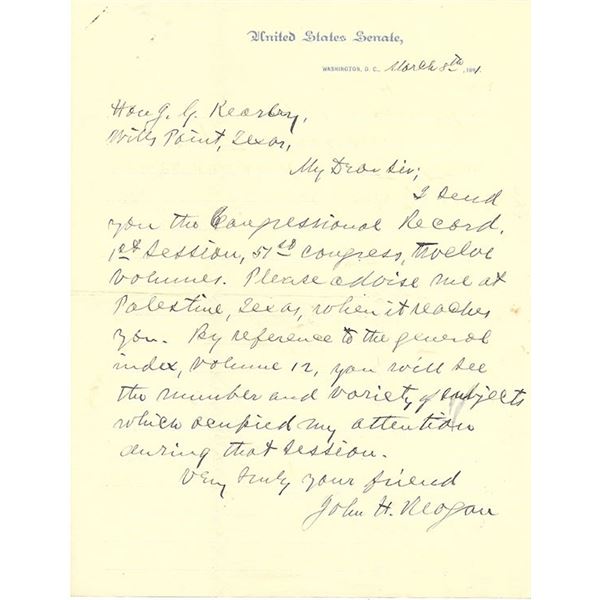 United States Senate,
WASHINGTON, D. C., March 8th, 1891.
Hon J. G. Kearby,
Wills Point, Texas,
My Dear Sir;
I send
you the Congressional Record,
1st Session, 51st Congress, twelve
volumes. Please advise me at
Palestine, Texas, when it reaches
you. By reference to the general
index, volume 12, you will see
the number and variety of subjects
which ocupied my attention
during that session.
Very truly your friend
John H. Reagan